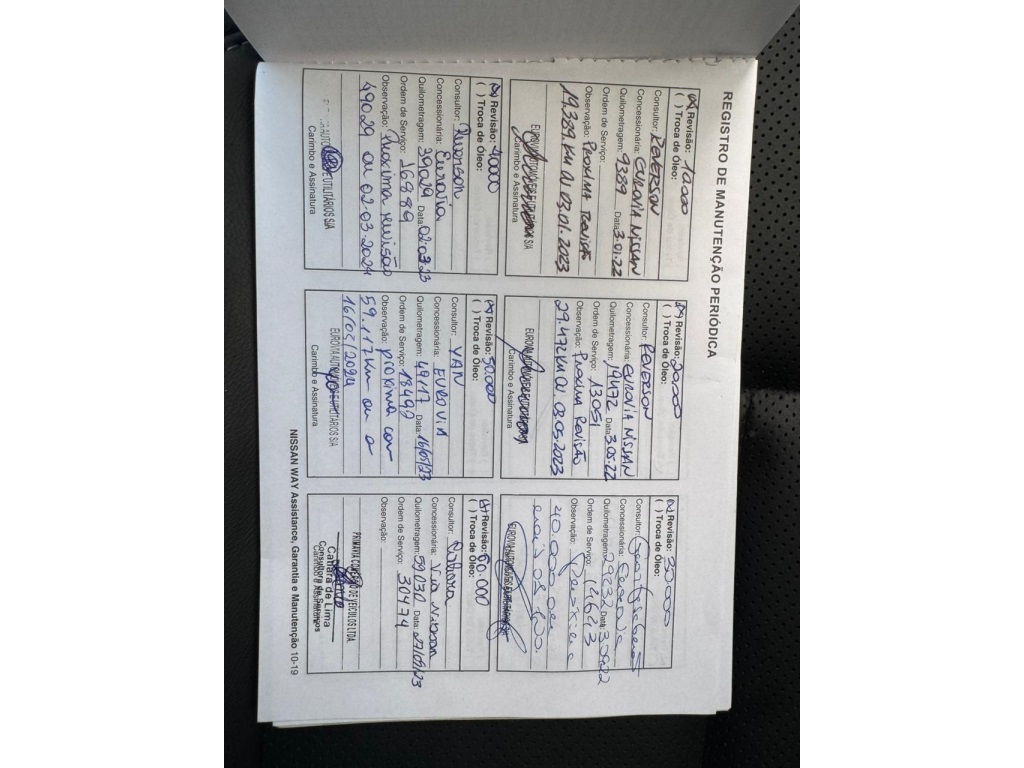 REGISTRO DE MANUTENÇÃO PERIÓDICA
(X) Revisão: 10.000
( ) Troca de Óleo:
Consultor: ROVERSON
Concessionária: EUROVIA NISSAN
Quilometragem: 9389 Data: 3.01.22
Ordem de Serviço:
Observação: PROXIMA REVISÃO
19.389 KM OU 03.01.2023
Carimbo e Assinatura
(X) Revisão: 20.000
( ) Troca de Óleo:
Consultor: ROVERSON
Concessionária: EUROVIA NISSAN
Quilometragem: 19472 Data: 3.05.22
Ordem de Serviço: 13051
Observação: Proxima Revisão
29.472 KM OU 03.05.2023
Carimbo e Assinatura
(X) Revisão: 30.000
( ) Troca de Óleo:
Consultor:
Concessionária:
Quilometragem: 29232 Data:
Ordem de Serviço: 14623
Observação:
40.000
Carimbo e Assinatura
(X) Revisão: 40000
( ) Troca de Óleo:
Consultor:
Concessionária: Eurovia
Quilometragem: 39029 Data: 02.03.23
Ordem de Serviço: 16889
Observação: Proxima Revisão
49029 ou 02.03.2024
UTILITÁRIOS S/A
Carimbo e Assinatura
(X) Revisão: 50.000
( ) Troca de Óleo:
Consultor: YAN
Concessionária: EUROVIA
Quilometragem: 49117 Data: 16/05/23
Ordem de Serviço: 18499
Observação: proxima com
59.117 km ou a
16/05/2024
EUROVIA AUTOMÓVEIS E UTILITÁRIOS S/A
Carimbo e Assinatura
(X) Revisão: 60.000
( ) Troca de Óleo:
Consultor:
Concessionária: Via Nissan
Quilometragem: 59.030 Data: 27/09/23
Ordem de Serviço: 30474
Observação:
PRIMAVIA COMÉRCIO DE VEÍCULOS LTDA
de Lima
Consultora de Serviços
Carimbo e Assinatura
NISSAN WAY Assistance, Garantia e Manutenção 10-19